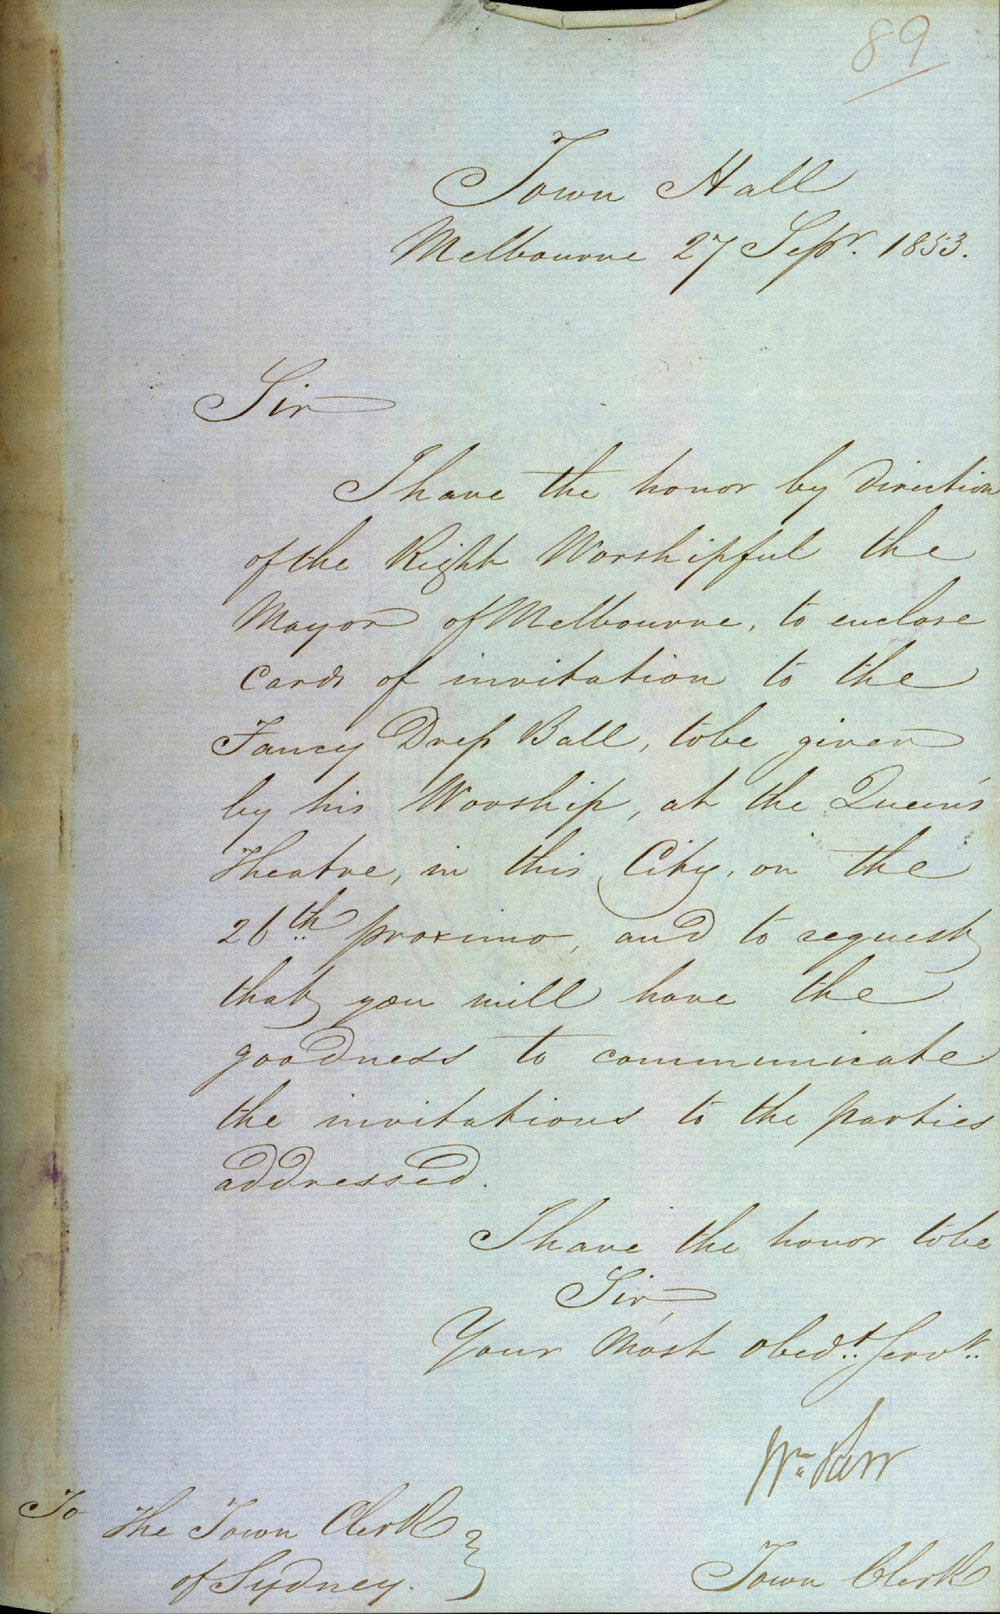 89
Town Hall
Melbourne 27 Sepr. 1853.
Sir
I have the honor by direction
of the Right Worshipful the
Mayor of Melbourne, to enclose
Cards of invitation to the
Fancy Dress Ball, to be given
by his Worship, at the Queen's
Theatre, in this City, on the
26th proximo, and to request
that you will have the
goodness to communicate
the invitations to the parties
addressed.
I have the honor to be
Sir,
Your Most obedt. Servt.
Wm Kerr
To The Town Clerk
of Sydney.
Town Clerk